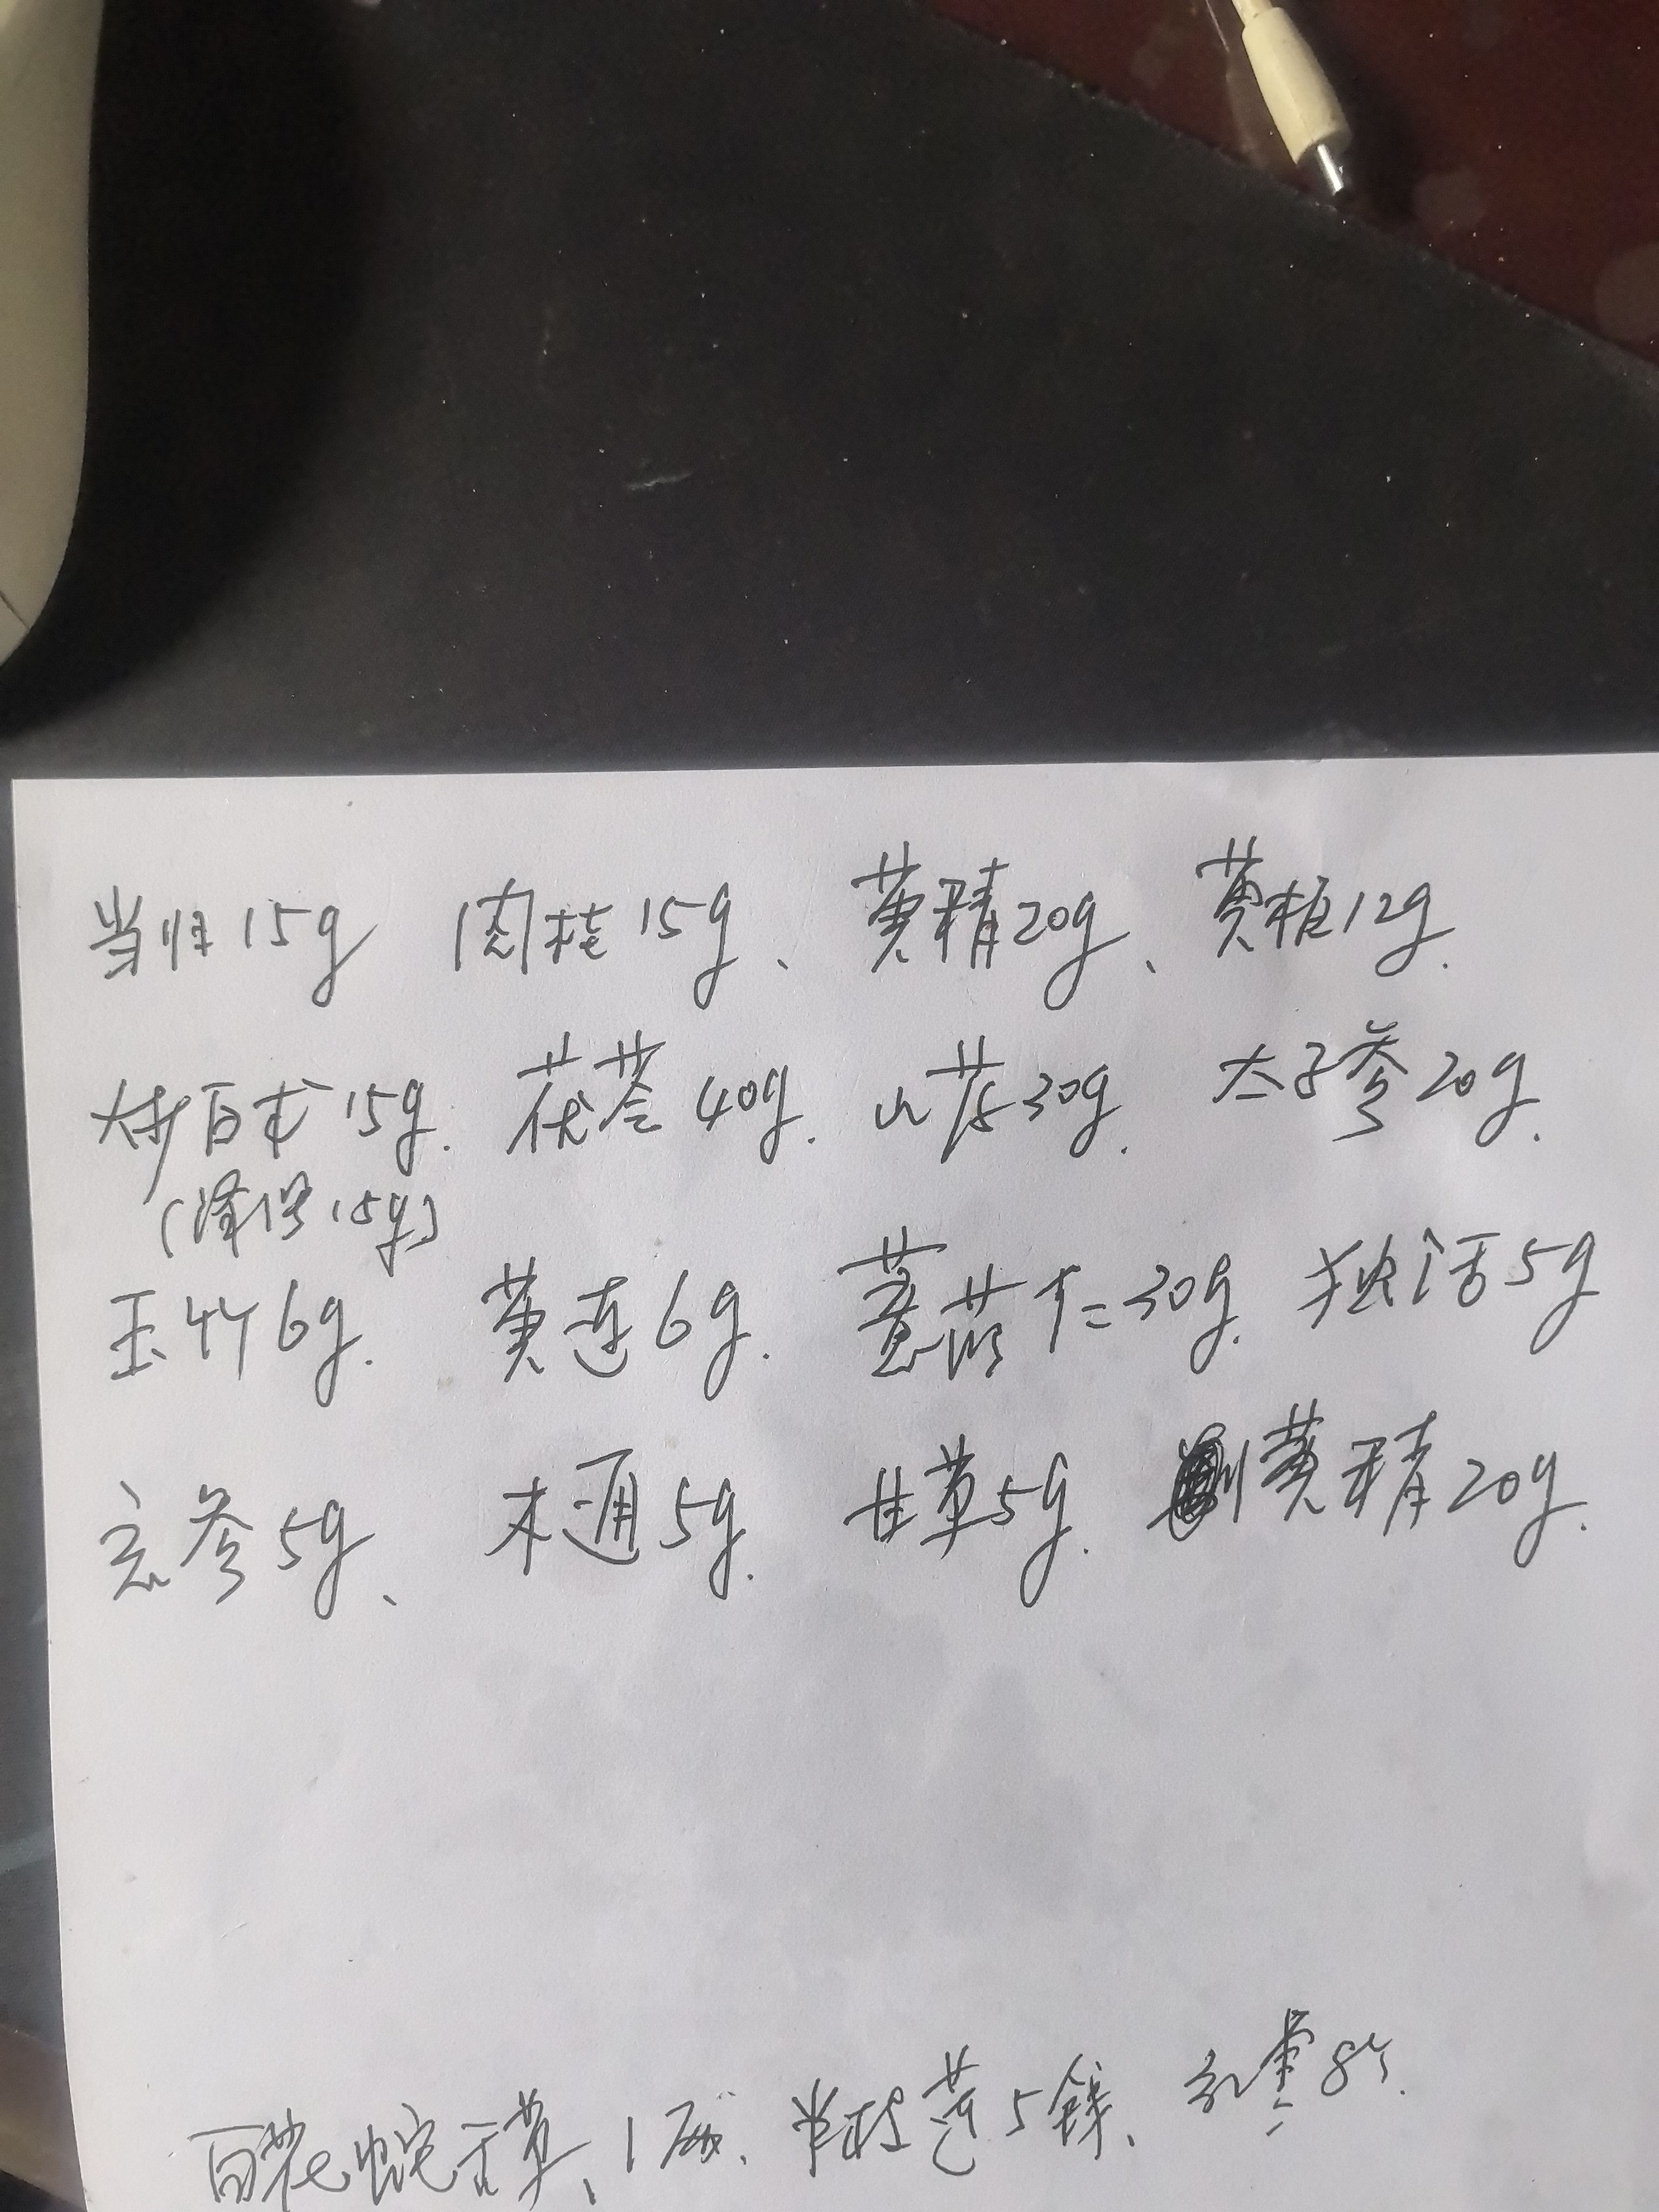 当归15g 肉桂15g、黄精20g、黄柏12g.
炒白术15g. 茯苓40g. 山药30g. 太子参20g.
(泽泻15g)
玉竹6g. 黄连6g. 薏苡仁30g. 独活5g
玄参5g、木通5g. 甘草5g. 黄精20g.
百花蛇舌草、1两、半枝莲5錢、红枣8个.